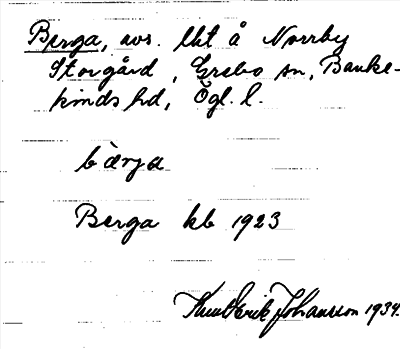 Berga, avs. lht å Norrby
Storgård, Grebo sn, Banke-
kinds hd, Ögl. l.
bàrya
Berga kb 1923
Knut Erik Johansson 1934.